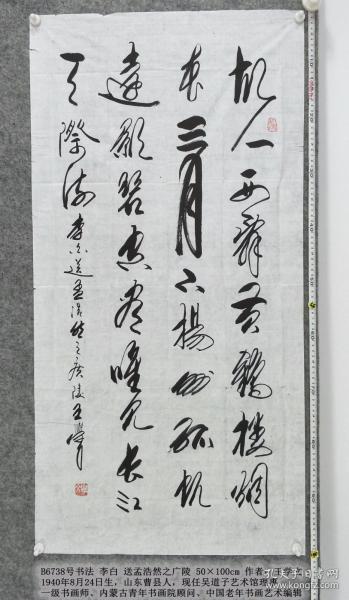 故人西辞黄鹤楼烟
花三月下扬州孤帆
远影碧空尽唯见长江
天际流 李白送孟浩然之广陵 王学
B6738号书法 李白 送孟浩然之广陵 50×100cm 作者:王学
1940年8月24日生，山东曹县人，现任吴道子艺术馆理事
一级书画师、内蒙古青年书画院顾问、中国老年书画艺术编辑